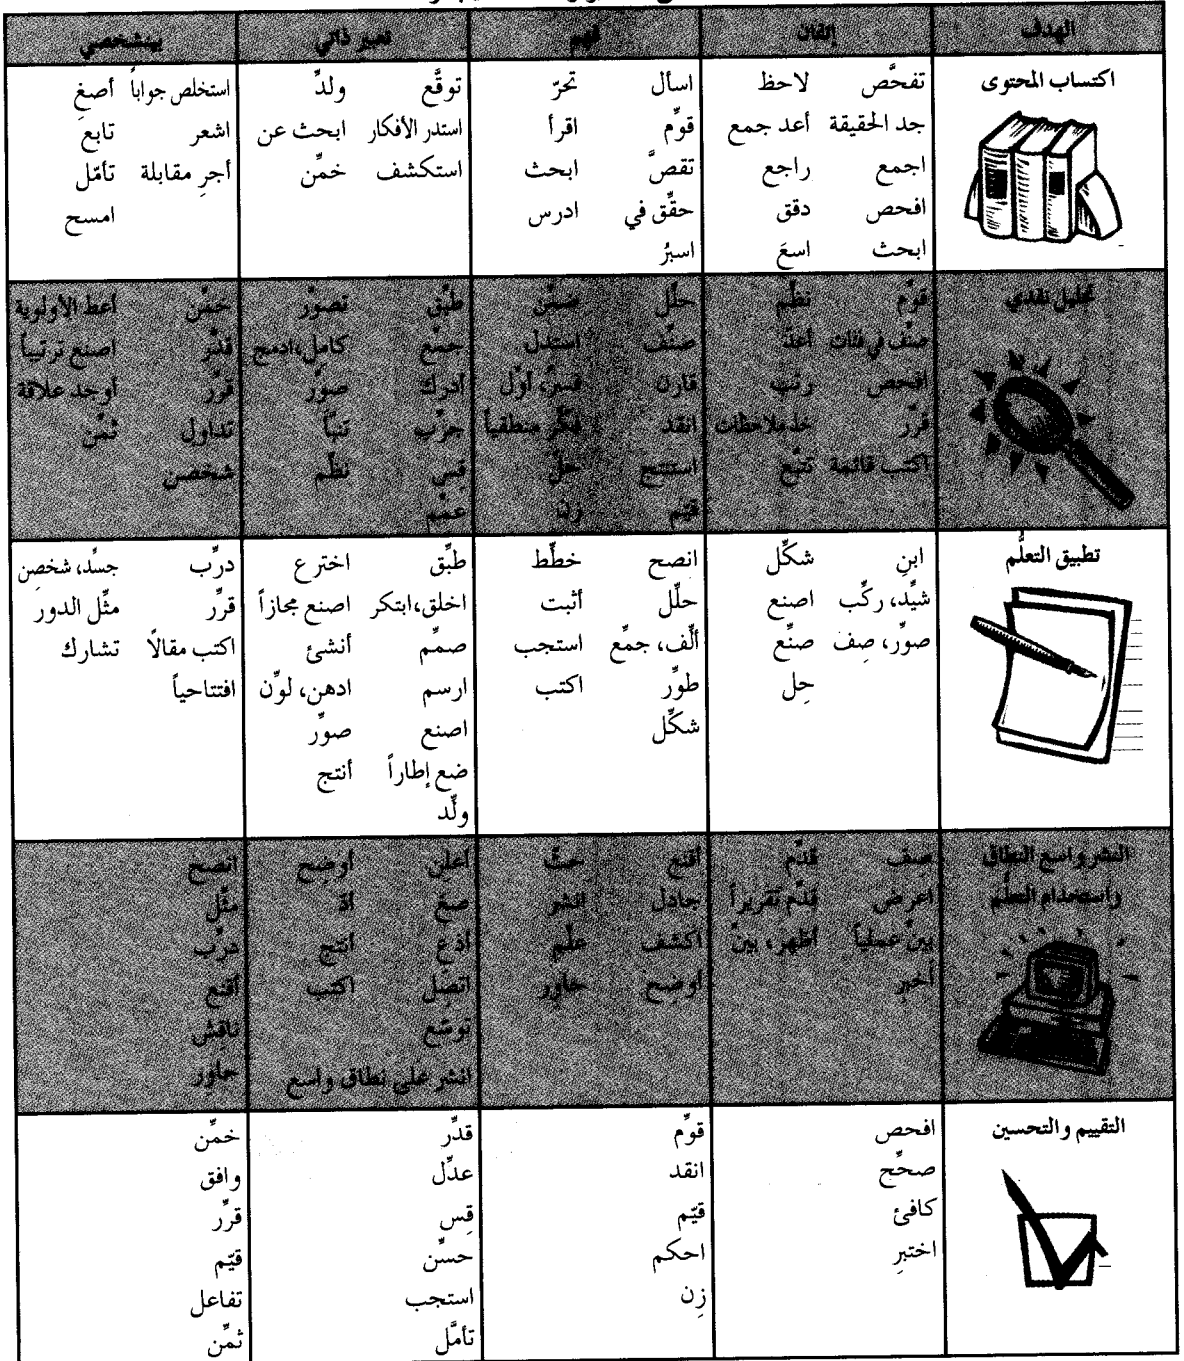 الهدف إتقان فهم تعبير ذاتي بينشخصي
اكتساب المحتوى
تفحَّص لاحظ
جد الحقيقة أعد جمع
اجمع راجع
افحص دقق
ابحث اسعَ
اسأل تحرّ
قوِّم اقرأ
تقصَّ ابحث
حقِّق في ادرس
اسبرُ
توقَّع ولدِّ
استدر الأفكار ابحث عن
استكشف خمِّن
استخلص جواباً أصغِ
اشعر تابع
أجرِ مقابلة تأمّل
امسح
تحليل نقدي
قوِّم نظِّم
صنِّف في فئات أعدّ
افحص رتّب
قرِّر خذ ملاحظات
اكتب قائمة تتبّع
حلِّل
صنِّف استدل
قارن فسرِّ، أوّل
انقد فكِّر منطقياً
استنتج حلّ
قيّم زن
طبِّق تصوّر
جمّع كامل،ادمج
أدرك صوِّر
جرِّب تنبّأ
قس نظِّم
عمّم
خمِّن أعط الأولوية
قدِّر اصنع ترتيباً
قرِّر أوجد علاقة
تداول ثمِّن
شخصن
تطبيق التعلُّم
ابنِ شكِّل
شيِّد، ركِّب اصنع
صوِّر، صِف صنِّع
حِل
انصح خطِّط
حلِّل أثبت
ألِّف، جمِّع استجب
طوِّر اكتب
شكِّل
طبِّق اخترع
اخلق،ابتكر اصنع مجازاً
صمِّم أنشئ
ارسم ادهن، لوِّن
اصنع صوِّر
ضع إطاراً أنتج
ولِّد
درِّب جسِّد، شخصِن
قرِّر مثِّل الدور
اكتب مقالًا تشارك
افتتاحياً
النشر واسع النطاق
واستخدام التعلُّم
صِف قدِّم
اعرض قدِّم تقريراً
بينّ عملياً أظهر، بينّ
أخبِر
أقنع حثّ
جادل انشر
اكشف علِّم
أوضح حاوِر
أعلن أوضح
صغ أدّ
أذع أنتج
اتصِل اكتب
توسّع
انشر على نطاق واسع
انصح
مثِّل
درِّب
أقنع
ناقش
حاوِر
التقييم والتحسين
افحص
صحِّح
كافئ
اختبرِ
قوِّم
انقد
قيّم
احكم
زِن
قدِّر
عدِّل
قِس
حسِّن
استجب
تأمَّل
خمِّن
وافق
قرِّر
قيّم
تفاعل
ثمِّن